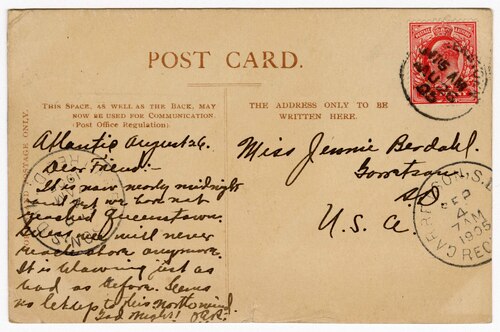 POST CARD.
THIS SPACE, AS WELL AS THE BACK, MAY
NOW BE USED FOR COMMUNICATION.
(Post Office Regulation)
THE ADDRESS ONLY TO BE
WRITTEN HERE.
Atlantic August 26.
Dear Friend:-
It is now nearly midnight
and yet we have not
reached Queenstown.
we will never
reach shore anymore.
It is blowing just as
bad as before. Seems
no let up to this north wind.
Good Night!
Miss Jennie Berdahl.
Garretson
SD
U. S. A.
GARRETSON, S.D.
SEP
4
7AM
1905
REC'D